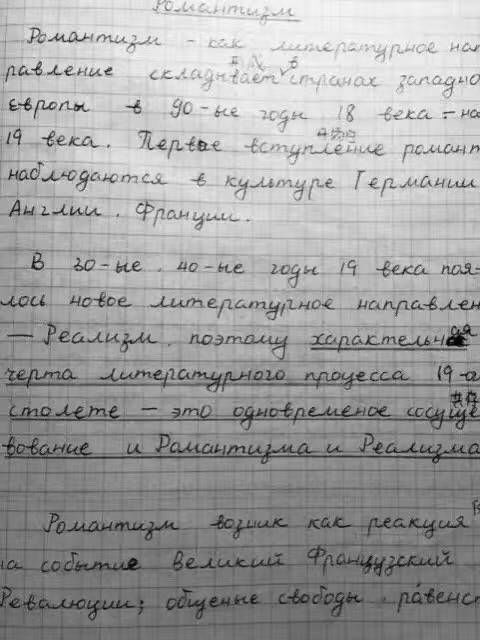 Романтизм
Романтизм - как литературное нап
равление складывает в странах западно
европы в 90-ые годы 18 века - на
19 века. Первое вступление романт
наблюдаются в культуре Германии
Англии. Франции.
В 30-ые. 40-ые годы 19 века поя-
лось новое литературное направлен
— Реализм. поэтому характельная
черта литературного процесса 19-о
столете — это одновременое сосуще
вование и Романтизма и Реализма
Романтизм возник как реакция
на событие великий Французский
Революции; общеные свободы. равенст